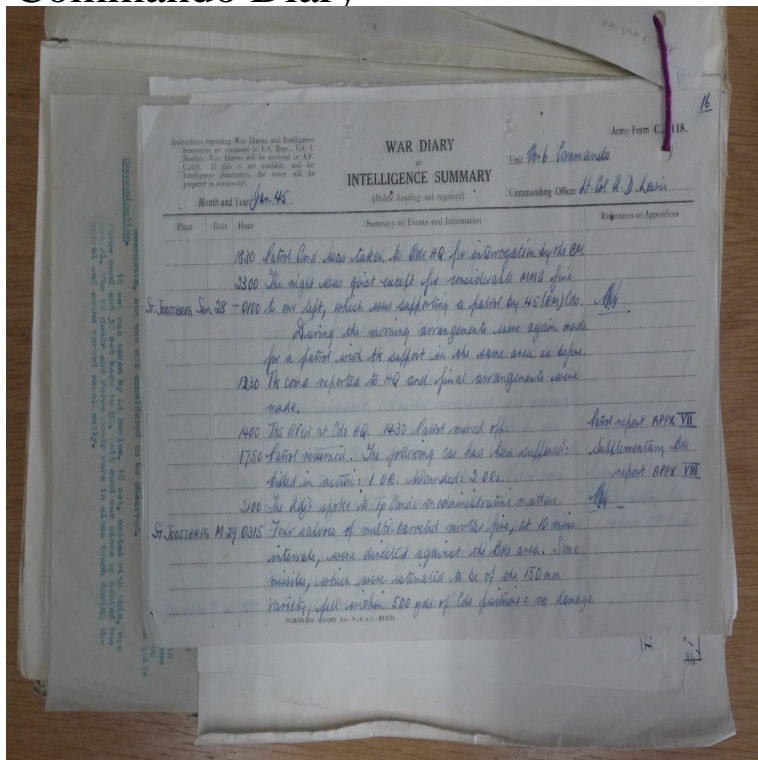 Commando Diary
16
Army Form C. 2118.
Instructions regarding War Diaries and Intelligence
Summaries are contained in F.S. Regs., Vol. I.
Monthly War Diaries will be enclosed in A.F.
C.2119. If this is not available, and for
Intelligence Summaries, the cover will be
prepared in manuscript.
WAR DIARY
or
INTELLIGENCE SUMMARY
(Delete heading not required).
Unit No. 6 Commando.
Commanding Officer Lt-Col A.D. Lewis
Month and Year Jan 45
Place Date Hour Summary of Events and Information References to Appendices
1830 Patrol Comd was taken to Bde HQ for interrogation by the BM
2300 The night was quiet except for considerable MMG fire
St. JOOSTBERG Sun 28 -0100 to our left, which was supporting a patrol by 45 (RM) Cdo.
During the morning arrangements were again made
for a patrol with tk support in the same area as before.
1230 Tk comd reported to HQ and final arrangements were
made.
1400 Tks RVed at Cdo HQ. 1430 Patrol moved off. Patrol report APPX VII
1750 Patrol returned. The following cas had been suffered: Supplementary Bde
killed in action: 1 OR. Wounded: 2 ORs. report APPX VIII
2100 The Adjt spoke to Tp Comds on administrative matters.
St JOOSTBERG M 29 0315 Four salvoes of multi barreled mortar fire, at 10 mins
intervals, were directed against the Bde area. Some
missiles, which were estimated to be of the 150 mm
variety, fell within 500 yds of Cdo positions: no damage
Communications.